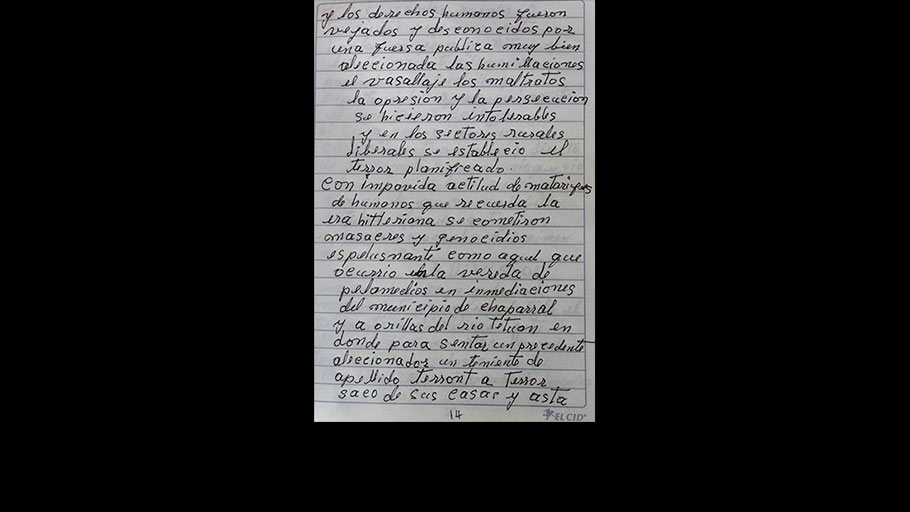 y los derechos humanos fueron
vejados y desconocidos por
una fuersa publica muy bien
aleccionada las humillaciones
el vasallaje los maltratos
la opresion y la persecucion
se hicieron intolerables
y en los sectores rurales
liberales se establecio el
terror planificado.
con impavida actitud de matarifes
de humanos que recuerda la
era hitleriana se cometiron
masacres y genocidios
espelusnante como aquel que
ocurrio en la vereda de
potamedios en inmediaciones
del municipio de chaparral
y a orillas del rio tetuan en
donde para sentar un precedente
aleccionador un teniente de
apellido terront a Terror
saco de sus casas y asta
14
EL CID